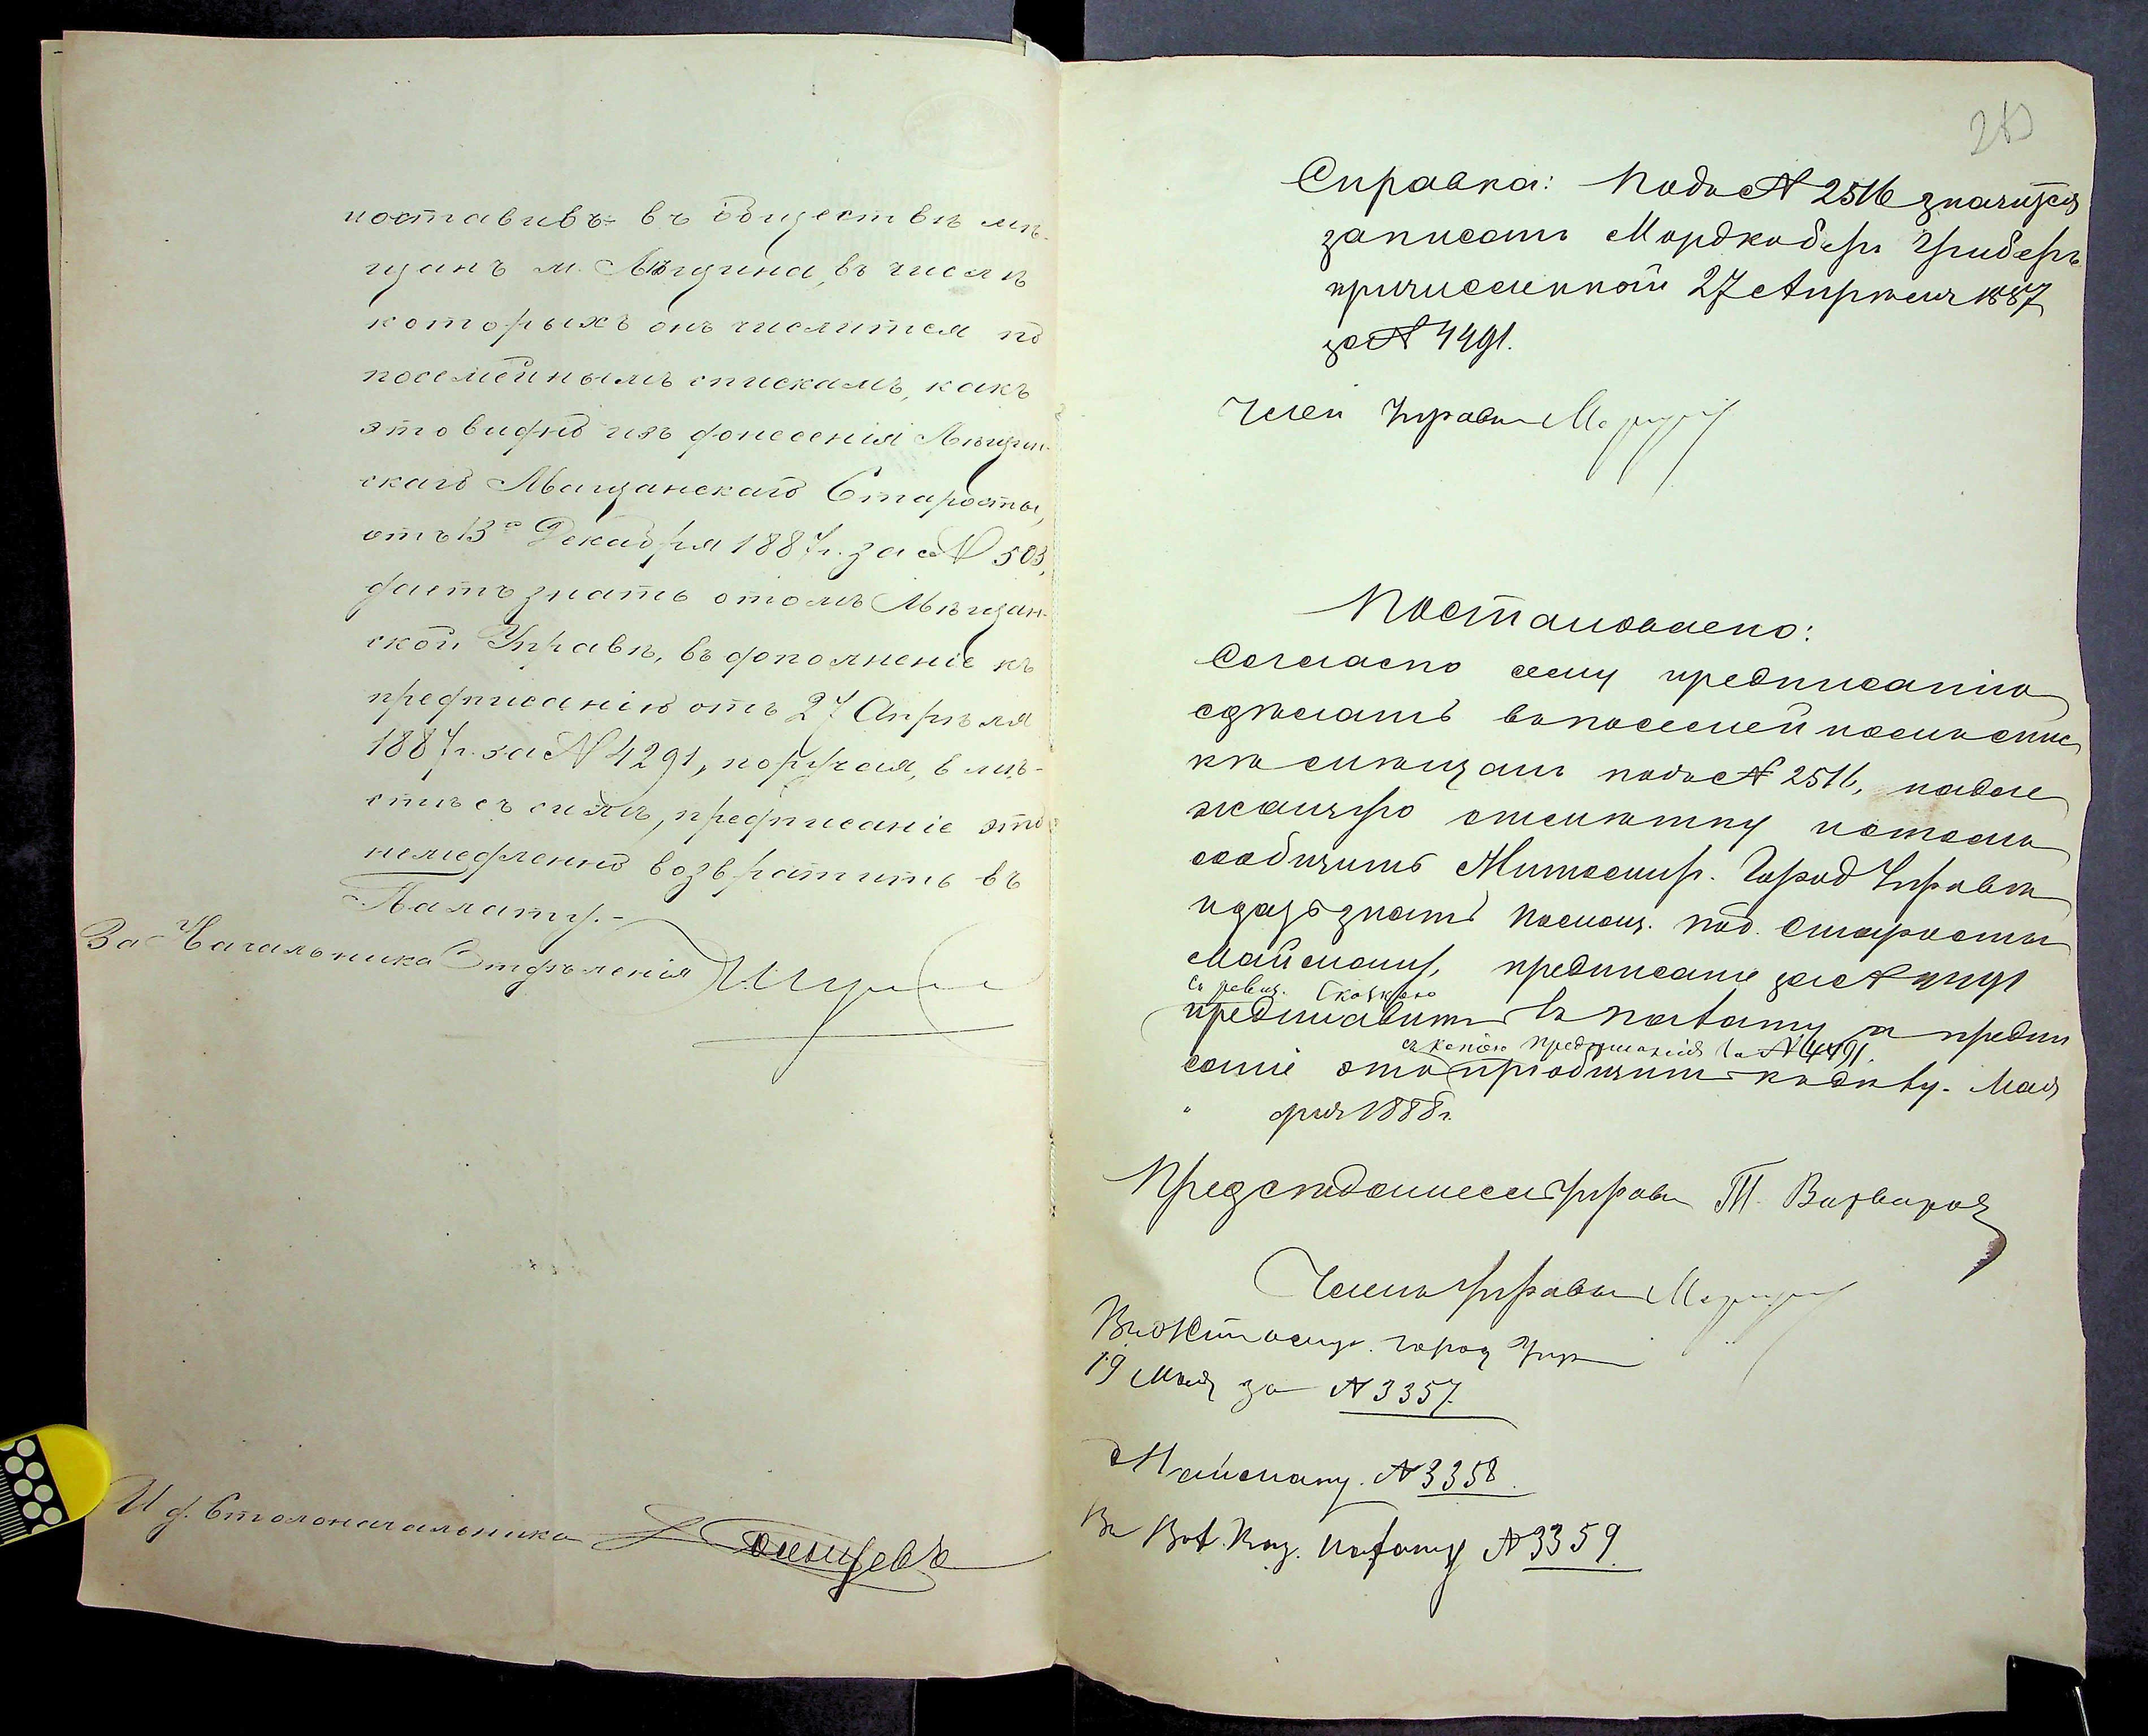 поставивъ въ обществѣ мѣ-
щанъ м. Лѣщина, въ числѣ
которыхъ онъ числится по
посемейнымъ спискамъ, какъ
это видно изъ донесенія Лѣщин-
скаго Мѣщанскаго Старосты,
отъ 13го Декабря 1887 г. за № 503,
даетъ знать о томъ Мѣщан-
ской Управѣ, въ дополненіе къ
предписанію отъ 27 Апрѣля
1887 г. за № 4291, поручая, вмѣ-
стѣ съ симъ, предписаніе это
немедленно возвратить въ
Палату.-
За Начальника Отдѣленія
И д. Столоначальника
Справка: Подъ № 2516 значится
записанъ Мордко-беръ
причисленной 27 Апрѣля 1887
за № 4491.
Членъ Управы
Постановлено:
Согласно сему предписанію
сдѣлать въ посемейномъ спис
кѣ мѣщанъ подъ № 2516, надле
жащую отмѣтку и о томъ
сообщить Житомир. Город Управѣ
и дать знать Помощ. Под. Старосты
Майсману, предписаніе за № 4491
съ ревиз. сказкою
представить въ Палату а предпи
съ копіею предписанія за № 4491.
саніе это пріобщить къ дѣлу. Мая
" дня 1888 г.
Предсѣдатель Управы Т.
Членъ Управы
Въ Житомир. город Упр
19 Мая за № 3357.
Майсману. № 3358.
Въ Вол. Каз. Палату № 3359.